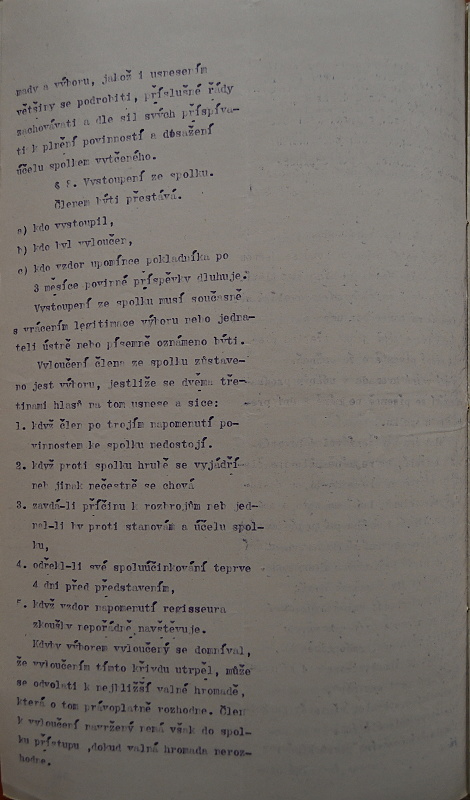 mady a výboru, jakož i usnesením
většiny se podrobiti, příslušné řády
zachovávati a dle sil svých přispíva-
ti k plnění povinností a dosažení
účelu spolkem vytčeného.
§ 8. Vystoupení ze spolku.
Členem býti přestává.
a) kdo vystoupil,
b) kdo byl vyloučen,
c) kdo vzdor upomínce pokladníka po
3 měsíce povinné příspěvky dluhuje.
Vystoupení ze spolku musí současně
s vrácením legitimace výboru nebo jedna-
teli ústně nebo písemně oznámeno býti.
Vyloučení člena ze spolku zůstave-
no jest výboru, jestliže se dvěma tře-
tinami hlasů na tom usnese a sice:
1. když člen po trojím napomenutí po-
vinnostem ke spolku nedostojí.
2. když proti spolku hrubě se vyjádří
neb jinak nečestně se chová
3. zavdá-li příčinu k rozbrojům neb jed-
nal-li by proti stanovám a účelu spol-
ku,
4. odřekl-li své spoluúčinkování teprve
4 dni před představením,
5. když vzdor napomenutí regisseura
zkoušky nepořádně navštěvuje.
Kdyby výborem vyloučený se domníval,
že vyloučením tímto křivdu utrpěl, může
se odvolati k nejbližší valné hromadě,
která o tom právoplatně rozhodne. Člen
k vyloučení navržený nemá však do spol-
ku přístupu ,dokud valná hromada neroz-
hodne.